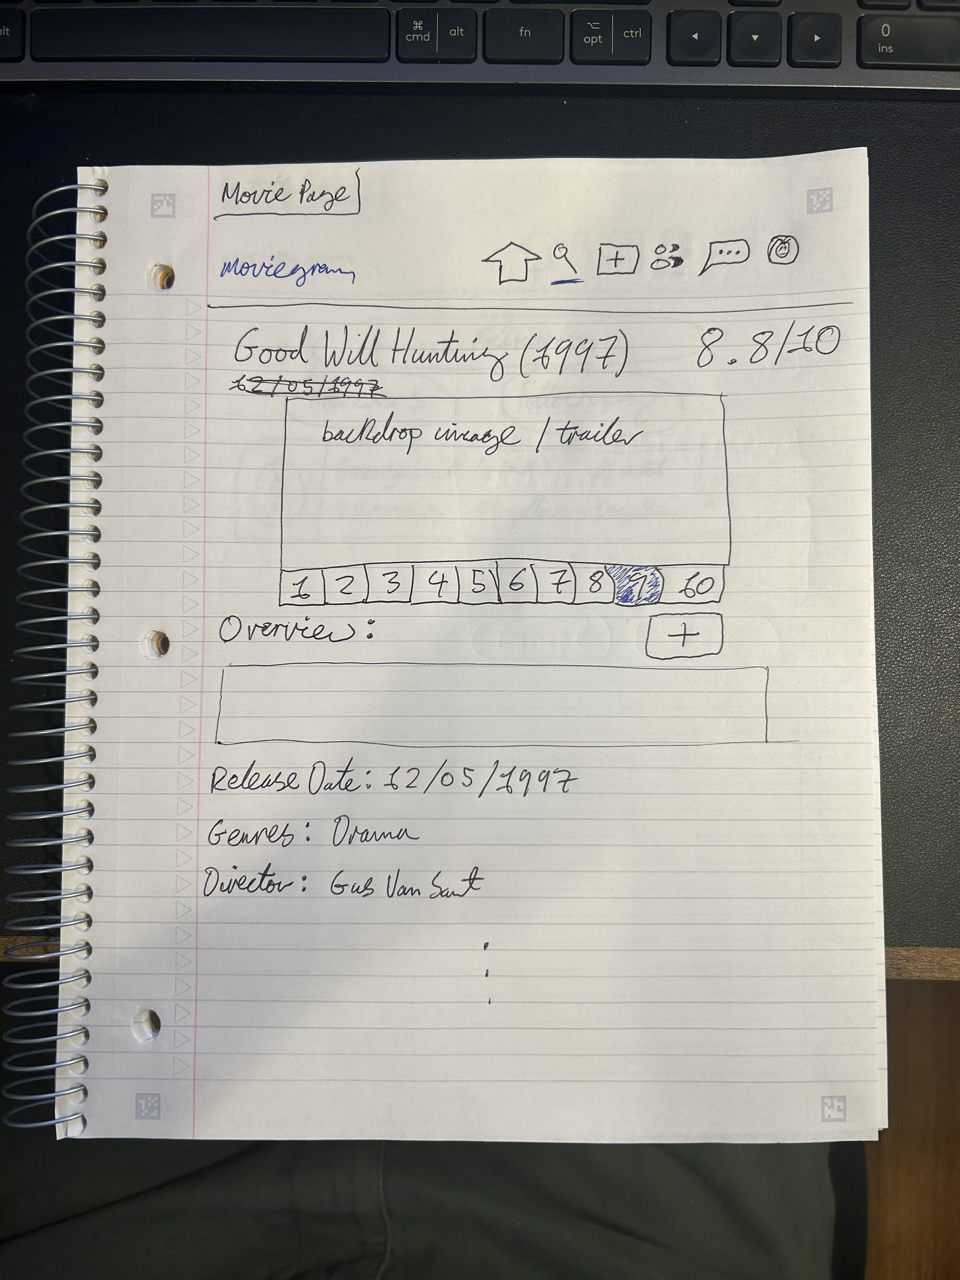 alt
⌘ cmd
alt
fn
⌥ opt
ctrl
0 ins
Movie Page
moviegram
+
Good Will Hunting (1997) 8.8/10
12/05/1997
backdrop image / trailer
1 2 3 4 5 6 7 8 9 10
Overview: +
Release Date: 12/05/1997
Genres: Drama
Director: Gus Van Sant